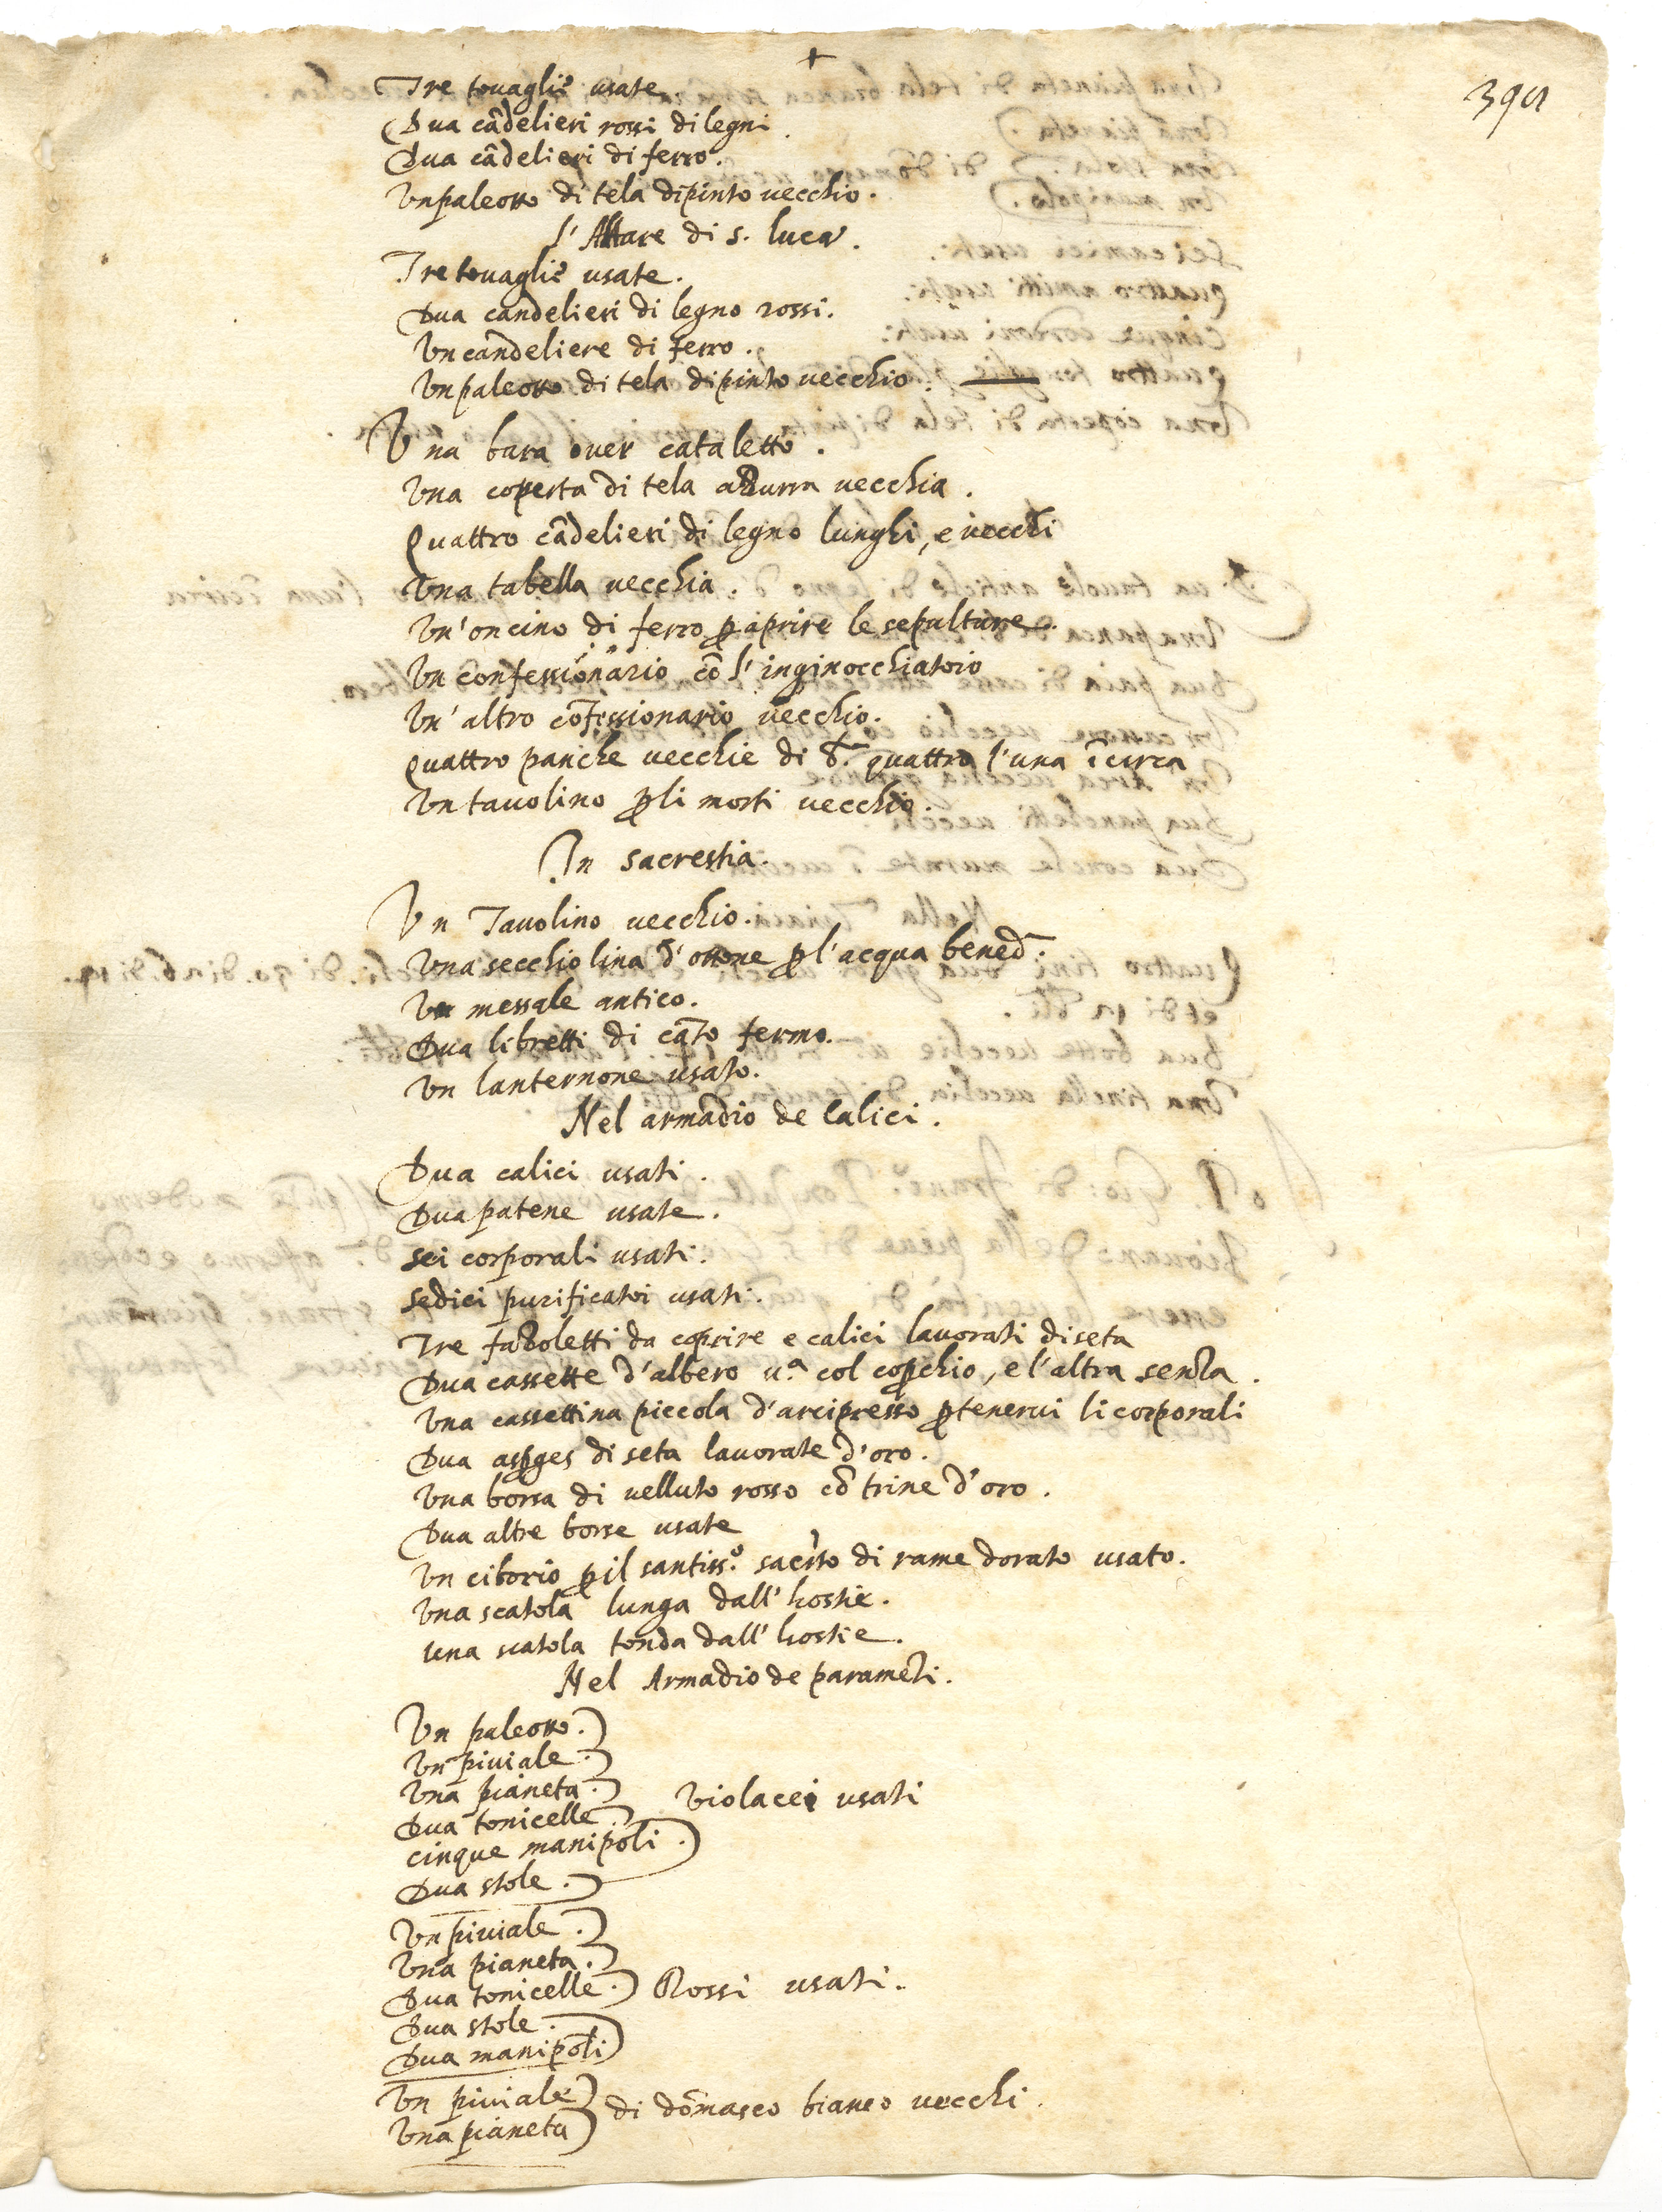 +
391
Tre touaglie usate.
Dua cãdelieri rossi di legni.
Dua cãdelieri di ferro.
Vn paleotto di tela dipinto uecchio.
l'Altare di s. luca.
Tre touaglie usate.
Dua candelieri di legno rossi.
Vn candeliere di ferro.
Vn paleotto di tela dipinto uecchio.
Vna bara ouer cataletto.
Vna coperta di tela azzurra uecchia.
Quattro cãdelieri di legno lunghi, e uecchi
Vna tabella uecchia.
Vn' oncino di ferro ꝑ aprire le sepulture.
Vn confessionario cõ l'inginocchiatoio
Vn' altro cõfessionario uecchio.
Quattro panche uecchie di quattro l'una ĩ circa
Vn tauolino ꝑ li morti uecchio.
In sacrestia.
Vn Tauolino uecchio.
Vna secchiolina d'ottone ꝑ l'acqua bened.
Vn messale antico.
Dua libretti di cãto fermo.
Vn lanternone usato.
Nel armadio de Calici.
Dua calici usati.
Dua patene usate.
Sei corporali usati.
Sedici purificatoi usati.
Tre fazoletti da coprire e calici lauorati di seta
Dua cassette d'albero u.ª col coꝑchio, e l'altra senza.
Vna cassettina piccola d'arcipresso ꝑ tenerui li corporali
Dua asꝑges di seta lauorate d'oro.
Vna borsa di uelluto rosso cõ trine d'oro.
Dua altre borse usate
Vn ciborio ꝑ il santiss.º sacr̃to di rame dorato usato.
Vna scatola lunga dall' hostie.
Una scatola tonda dall' hostie.
Nel Armadio de paramẽti.
Vn paleotto.
Vn piuiale.
Vna pianeta.
Dua tonicelle.
cinque manipoli.
Dua stole.
Violacei usati
Vn piuiale.
Vna pianeta.
Dua tonicelle.
Dua stole.
Dua manipoli
Rossi usati.
Vn piuiale
Vna pianeta
di domasco bianco uecchi.